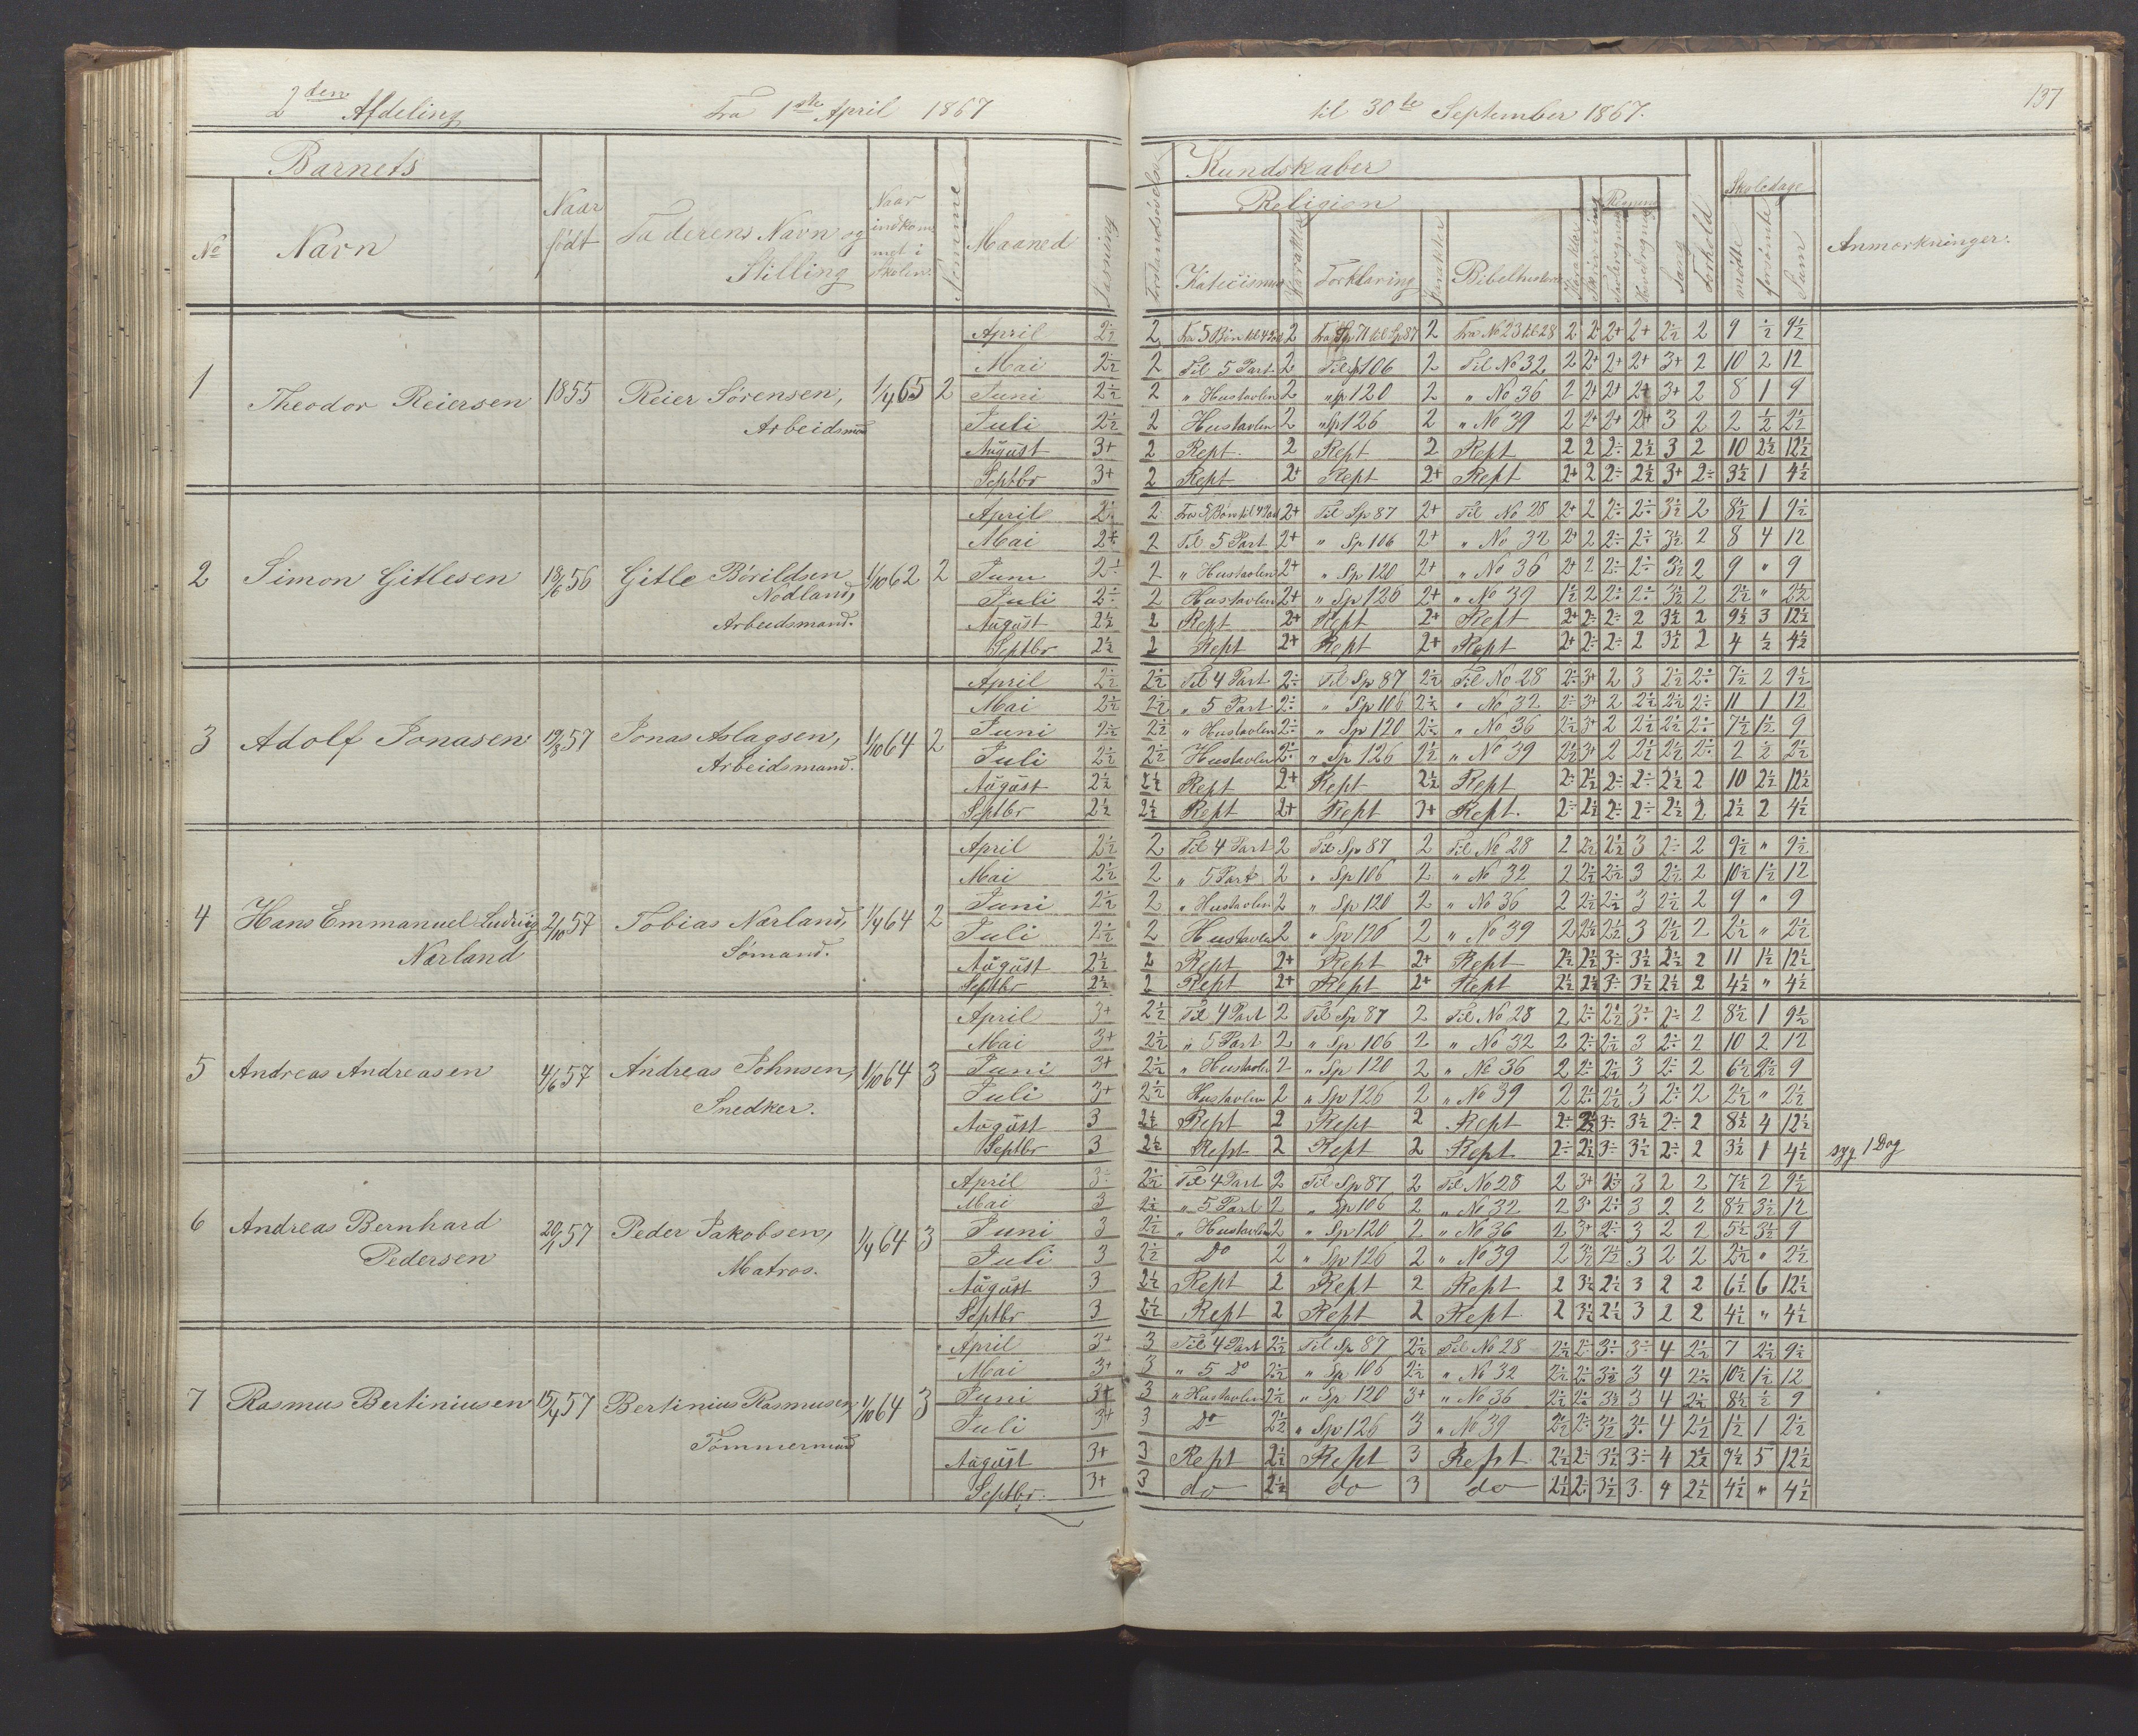 2den Afdeling Fra 1ste April 1867 til 30te September 1867. 137
Barnets
No Navn Naar født Faderens Navn og Stilling Naar indkommet i Skolen Evnerne Maaned Læsning Forstandsøvelse
Kundskaber
Religion Skrivning Regning Sang Forhold Skoledage Anmærkninger.
Katecismus Karakter Forklaring Karakter Bibelhistorie Karakter Tavleregning Hovedregning mødte forsømte Sum
1 Theodor Reiersen 1855 Reier Sørensen, Arbeidsmand 1/4 65 2
April 2÷2 2 Fra 5 Bøn til 4 Part 2 Fra Sp 71 til Sp 87 2 Fra No 23 til 28 2 2+ 2+ 2+ 2½ 2 9 ½ 9½
Mai 2½ 2 Til 5 Part 2 Til Sp 106 2 Til No 32 2 2+ 2+ 2+ 3+ 2 10 2 12
Juni 2½ 2 " Hustavlen 2 " Sp 120 2 " No 36 2 2+ 2+ 2+ 3+ 2 8 1 9
Juli 2½ 2 Hustavlen 2 " Sp 126 2 " No 39 2 2+ 2+ 2+ 3 2 2 ½ 2½
August 3+ 2 Rept. 2 Rept 2 Rept 2 2 2÷ 2½ 3 2 10 2½ 12½
Septbr 3+ 2 Rept 2+ Rept 2+ Rept 2+ 2 2÷ 2½ 3+ 2÷ 3½ 1 4½
2 Simon Gitlesen 18/6 56 Gitle Börildsen Nodland, Arbeidsmand. 1/10 62 2
April 2÷ 2 Fra 5 Bøn til 4 Part 2+ Til Sp 87 2+ Til No 28 2+ 2 2÷ 2÷ 3½ 2 8½ 1 9½
Mai 2÷ 2 Til 5 Part 2+ " Sp 106 2+ " No 32 2+ 2 2÷ 2÷ 3½ 2 8 4 12
Juni 2÷ 2 " Hustavlen 2+ " Sp 120 2+ " No 36 2+ 2 2÷ 2÷ 3½ 2 9 " 9
Juli 2÷ 2 Hustavlen 2+ " Sp 126 2+ " No 39 1½ 2 2÷ 2÷ 3½ 2 2½ " 2½
August 2½ 2 Rept 2+ Rept 2+ Rept 2+ 2÷ 2÷ 2 3½ 2 9½ 3 12½
Septbr 2½ 2 Rept 2+ Rept 2+ Rept 2+ 2÷ 2÷ 2 3½ 2 4 ½ 4½
3 Adolf Jonasen 19/8 57 Jonas Aslagsen, Arbeidsmand. 1/10 64 2
April 2½ 2½ Til 4 Part 2÷ Til Sp 87 2½ Til No 28 2÷ 3+ 2 3 2½ 2÷ 7½ 2 9½
Mai 2½ 2½ " 5 Part 2÷ " Sp 106 2½ " No 32 2÷ 3+ 2 2½ 2½ 2÷ 11 1 12
Juni 2½ 2½ " Hustavlen 2÷ " Sp 120 2½ " No 36 2½ 3+ 2 2½ 2½ 2÷ 7½ 1½ 9
Juli 2½ 2½ Hustavlen 2÷ " Sp 126 2½ " No 39 2½ 3+ 2 2½ 2½ 2÷ 2 ½ 2½
August 2½ 2½ Rept 2+ Rept 2½ Rept 2÷ 2½ 2÷ 2÷ 2½ 2 10 2½ 12½
Septbr 2½ 2½ Rept 2+ Rept 3+ Rept. 2÷ 2½ 2÷ 2÷ 2½ 2 2½ 2 4½
4 Hans Emmanuel Ludvig Nærland 2/10 57 Tobias Nærland, Sømand. 1/4 64 2
April 2½ 2 Til 4 Part 2 Til Sp 87 2 Til No 28 2 2½ 2½ 3 2÷ 2 9½ " 9½
Mai 2½ 2 " 5 Part 2 " Sp 106 2 " No 32 2 2½ 2½ 3 2½ 2 10½ 1½ 12
Juni 2½ 2 " Hustavlen 2 " Sp 120 2 " No 36 2 2½ 2½ 3 2½ 2 9 " 9
Juli 2½ 2 Hustavlen 2 " Sp 126 2 " No 39 2 2½ 2½ 3 2½ 2 2½ " 2½
August 2½ 2 Rept 2+ Rept 2+ Rept 2½ 2½ 3÷ 3½ 2½ 2 11 1½ 12½
Septbr 2½ 2 Rept 2+ Rept 2+ Rept 2½ 2½ 3÷ 3½ 2½ 2 4½ " 4½
5 Andreas Andreasen 4/6 57 Andreas Johnsen, Snedker. 1/10 64 3
April 3+ 2½ Til 4 Part 2 Til Sp 87 2 Til No 28 2 2÷ 2½ 3÷ 2÷ 2 8½ 1 9½
Mai 3+ 2½ " 5 Part 2 " Sp 106 2 " No 32 2 2÷ 2½ 3 2÷ 2 10 2 12
Juni 3+ 2½ " Hustavlen 2 " Sp 120 2 " No 36 2 2÷ 2½ 3 2÷ 2 6½ 2½ 9
Juli 3+ 2½ Hustavlen 2 " Sp 126 2 " No 39 2 2÷ 2½ 3 2÷ 2 2½ " 2½
August 3 2½ Rept 2 Rept 2 Rept 2÷ 2½ 3÷ 3½ 2÷ 2 8½ 4 12½
Septbr 3 2½ Rept 2 Rept 2 Rept 2÷ 2½ 3÷ 3½ 2÷ 2 3½ 1 4½ syg 1 Dag
6 Andreas Bernhard Pedersen 20/1 57 Peder Jakobsen, Matros. 1/4 64 3
April 3÷ 2½ Til 4 Part 2 Til Sp 87 2 Til No 28 2 3+ 2½ 3 2 2 7½ 2 9½
Mai 3 2½ " 5 Part 2 " Sp 106 2 " No 32 2 3+ 2÷ 3 2 2 8½ 3½ 12
Juni 3 2½ " Hustavlen 2 " Sp 120 2 " No 36 2 3+ 2÷ 3 2 2 5½ 3½ 9
Juli 3 2½ Do 2 " Sp 126 2 " No 39 2 3½ 2½ 3 2 2 2½ " 2½
August 3 2½ Rept 2 Rept 2 Rept 2 3½ 2½ 3 2 2 6½ 6 12½
Septbr 3 2½ Rept 2 Rept 2 Rept 2 3½ 2½ 3 2 2 4½ " 4½
7 Rasmus Bertiniusen 15/4 57 Bertinius Rasmusen Tömmermand 1/10 64 3
April 3+ 3 Til 4 Part 2½ Til Sp 87 2½ Til No 28 2½ 2÷ 3÷ 3÷ 4 2½ 7 2½ 9½
Mai 3+ 3 " 5 Do 2½ " Sp 106 2½ " No 32 2½ 2÷ 3½ 3 4 2½ 10½ 1½ 12
Juni 3+ 3 " Hustavlen 2½ " Sp 120 3+ " No 36 2½ 2÷ 3½ 3 4 2½ 8½ ½ 9
Juli 3+ 3 Do 2½ " Sp 126 3 " No 39 2½ 2÷ 3½ 3÷ 4 2½ 1½ 1 2½
August 3+ 3 Rept 2½ Rept 3 Rept 2½ 2÷ 3½ 3÷ 4 2½ 7½ 5 12½
Septbr. 3+ 3 do 2½ do 3 do 2½ 2÷ 3½ 3÷ 4 2½ 4½ " 4½